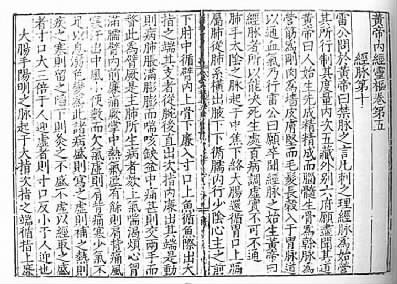 黃帝內經靈樞卷第五
經脉第十
雷公問於黃帝曰禁脉之言凡刺之理經脉為始營
其所行制其度量內次五藏外別六府願盡聞其道
黃帝曰人始生先成精精成而腦髓生骨為幹脉為
營筋為剛肉為墻皮膚堅而毛髮長穀入于胃脉道
以通血氣乃行雷公曰願卒聞經脉之始生黃帝曰
經脉者所以能決死生處百病調虛實不可不通
肺手太陰之脉起于中焦下絡大腸還循胃口上膈
屬肺從肺系橫出腋下下循臑內行少陰心主之前
下肘中循臂內上骨下廉入寸口上魚循魚際出大
指之端其支者從腕後直出次指內廉出其端是動
則病肺脹滿膨膨而喘咳缺盆中痛甚則交兩手而
瞀此為臂厥是主肺所生病者欬上氣喘渴煩心胷
滿臑臂內前廉痛厥掌中熱氣盛有餘則肩背痛風
寒汗出中風小便數而欠氣虛則肩背痛寒少氣不
足以息溺色變為此諸病盛則寫之虛則補之熱則
疾之寒則留之陷下則灸之不盛不虛以經取之盛
者寸口大三倍于人迎虛者則寸口反小于人迎也
大腸手陽明之脉起于大指次指之端循指上廉